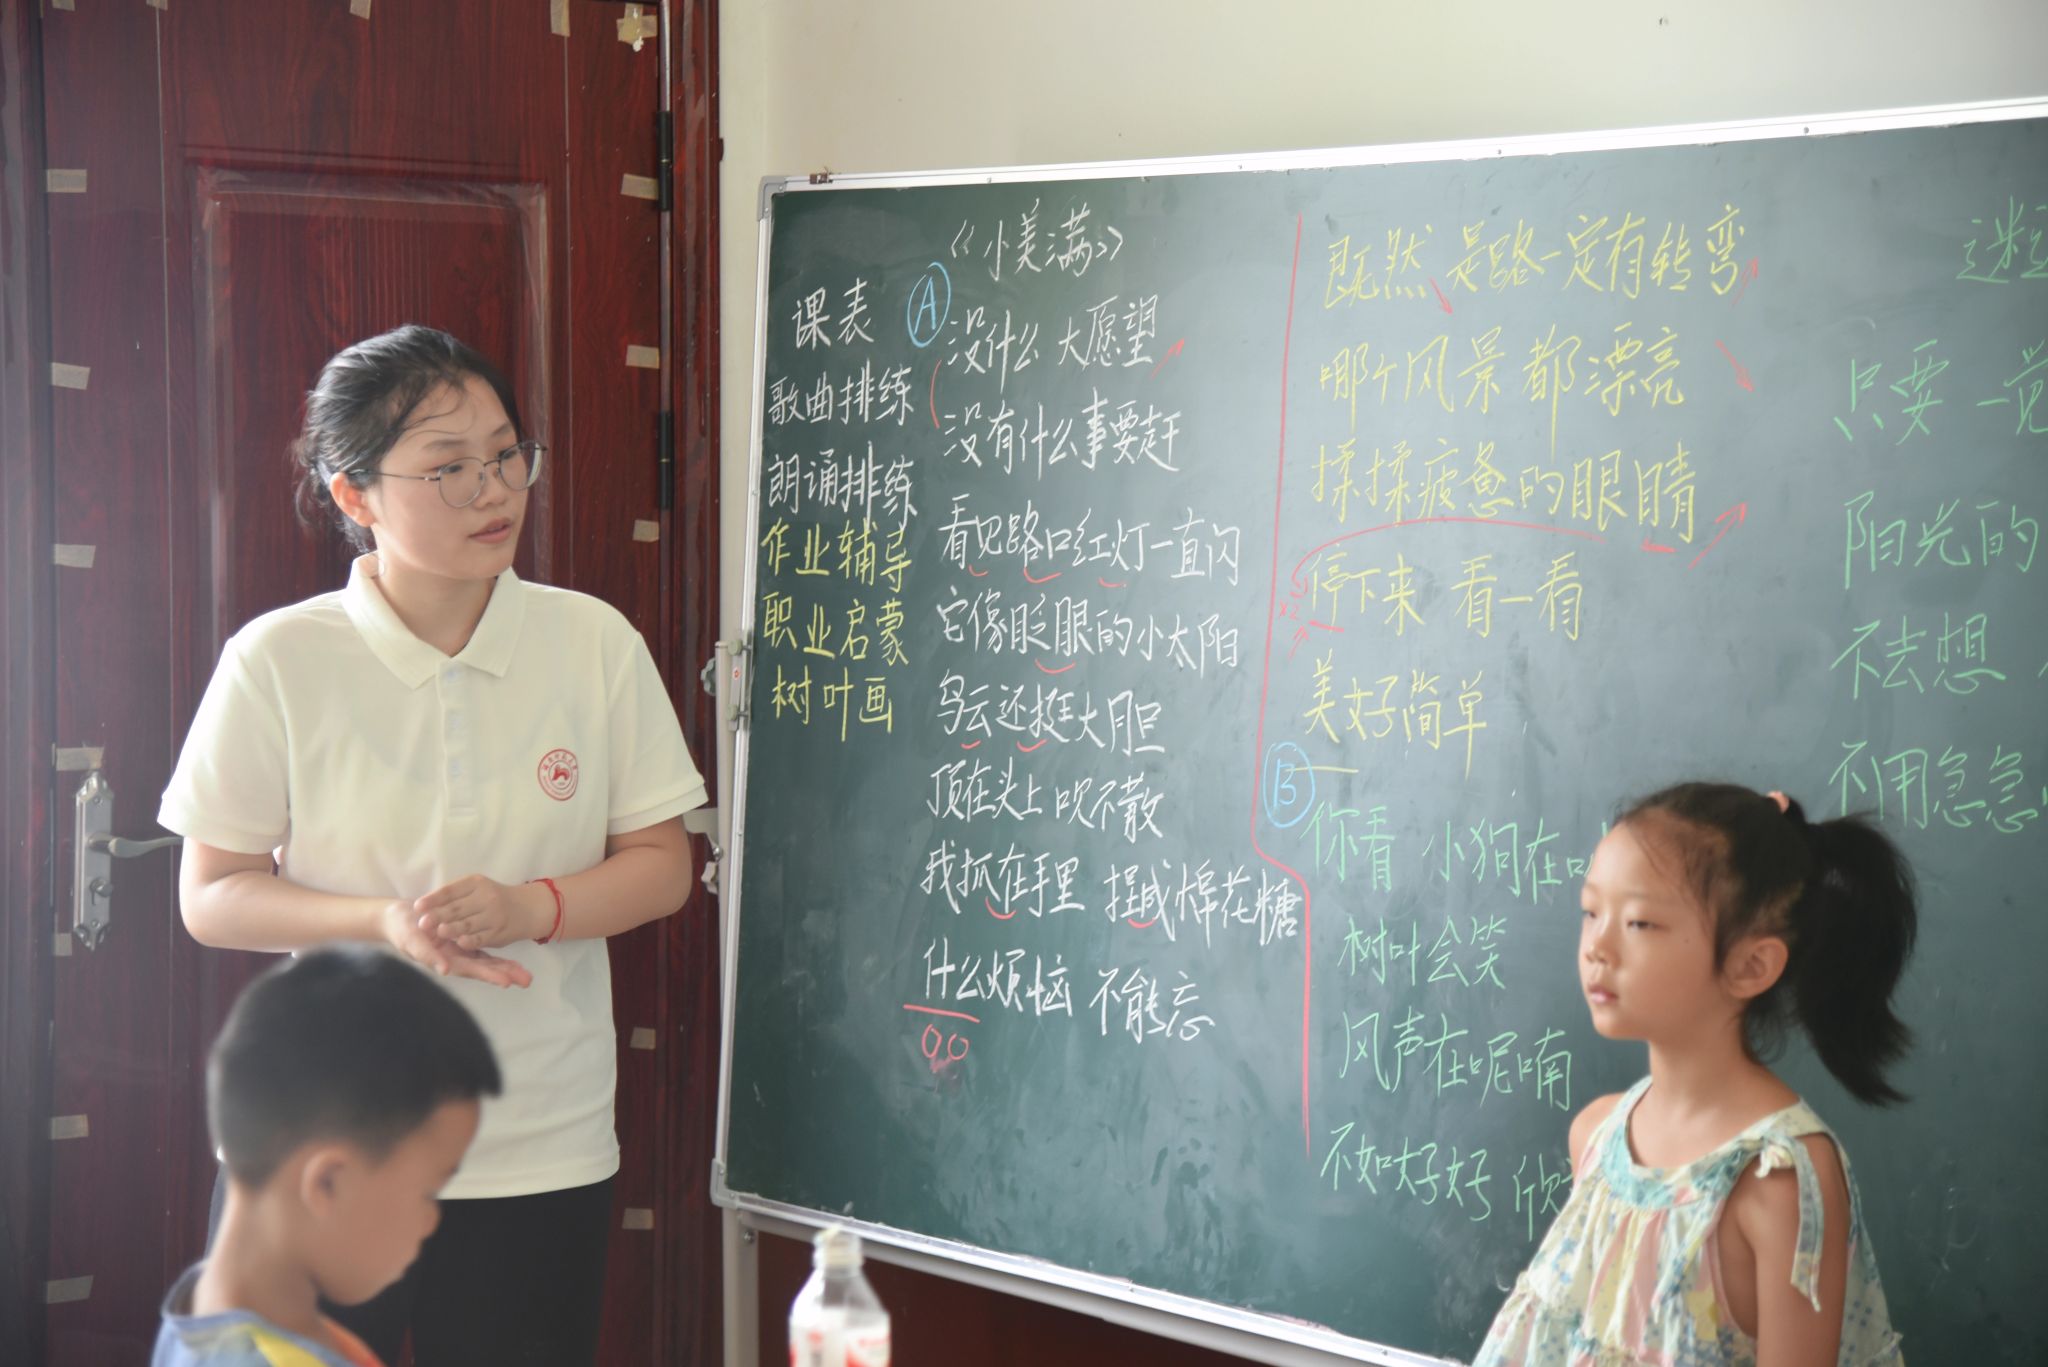 《小美满》
课表
歌曲排练
朗诵排练
作业辅导
职业启蒙
树叶画
A
没什么 大愿望
没有什么事要赶
看见路口红灯一直闪
它像眨眼的小太阳
乌云还挺大胆
顶在头上吹不散
我抓在手里 捏成棉花糖
什么烦恼 不能忘
00
既然是路一定有转弯
哪个风景都漂亮
揉揉疲惫的眼睛
x2
停下来 看一看
美好简单
B
你看 小狗在
树叶会笑
风声在呢喃
不如好好 欣
迷
只要 一觉
阳光的
不去想
不用急急